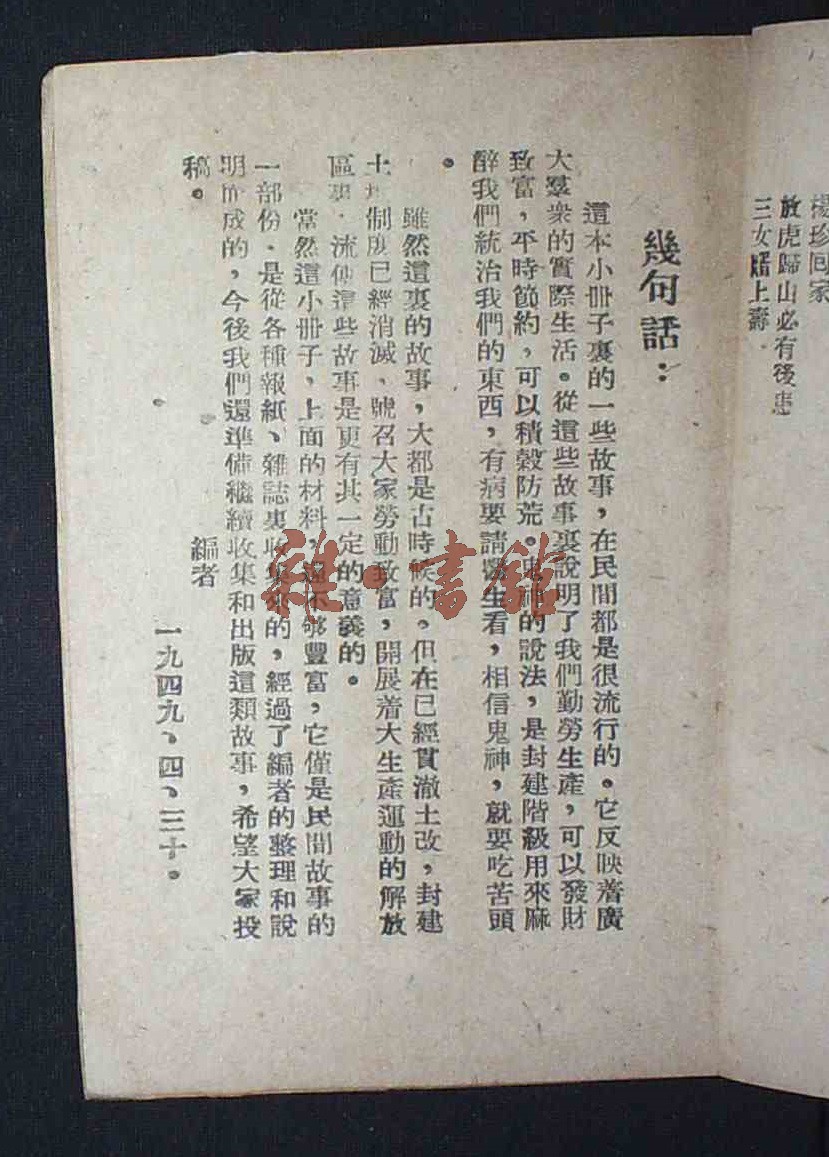 楊珍回家
放虎歸山必有後患
三女婿上壽
幾句話：
這本小冊子裏的一些故事，在民間都是很流行的。它反映着廣
大羣衆的實際生活。從這些故事裏說明了我們勤勞生產，可以發財
致富，平時節約，可以積穀防荒。鬼神的說法，是封建階級用來麻
醉我們統治我們的東西，有病要請醫生看，相信鬼神，就要吃苦頭
。
雖然這裏的故事，大都是古時候的。但在已經貫澈土改，封建
土地制度已經消滅、號召大家勞動致富，開展着大生產運動的解放
區裏，流傳這些故事是更有其一定的意義的。
當然這小冊子，上面的材料，還不够豐富，它僅是民間故事的
一部份，是從各種報紙、雜誌裏收集來的，經過了編者的整理和說
明而成的，今後我們還準備繼續收集和出版這類故事，希望大家投
稿。
編者
一九四九、四、三十。
雜·書館